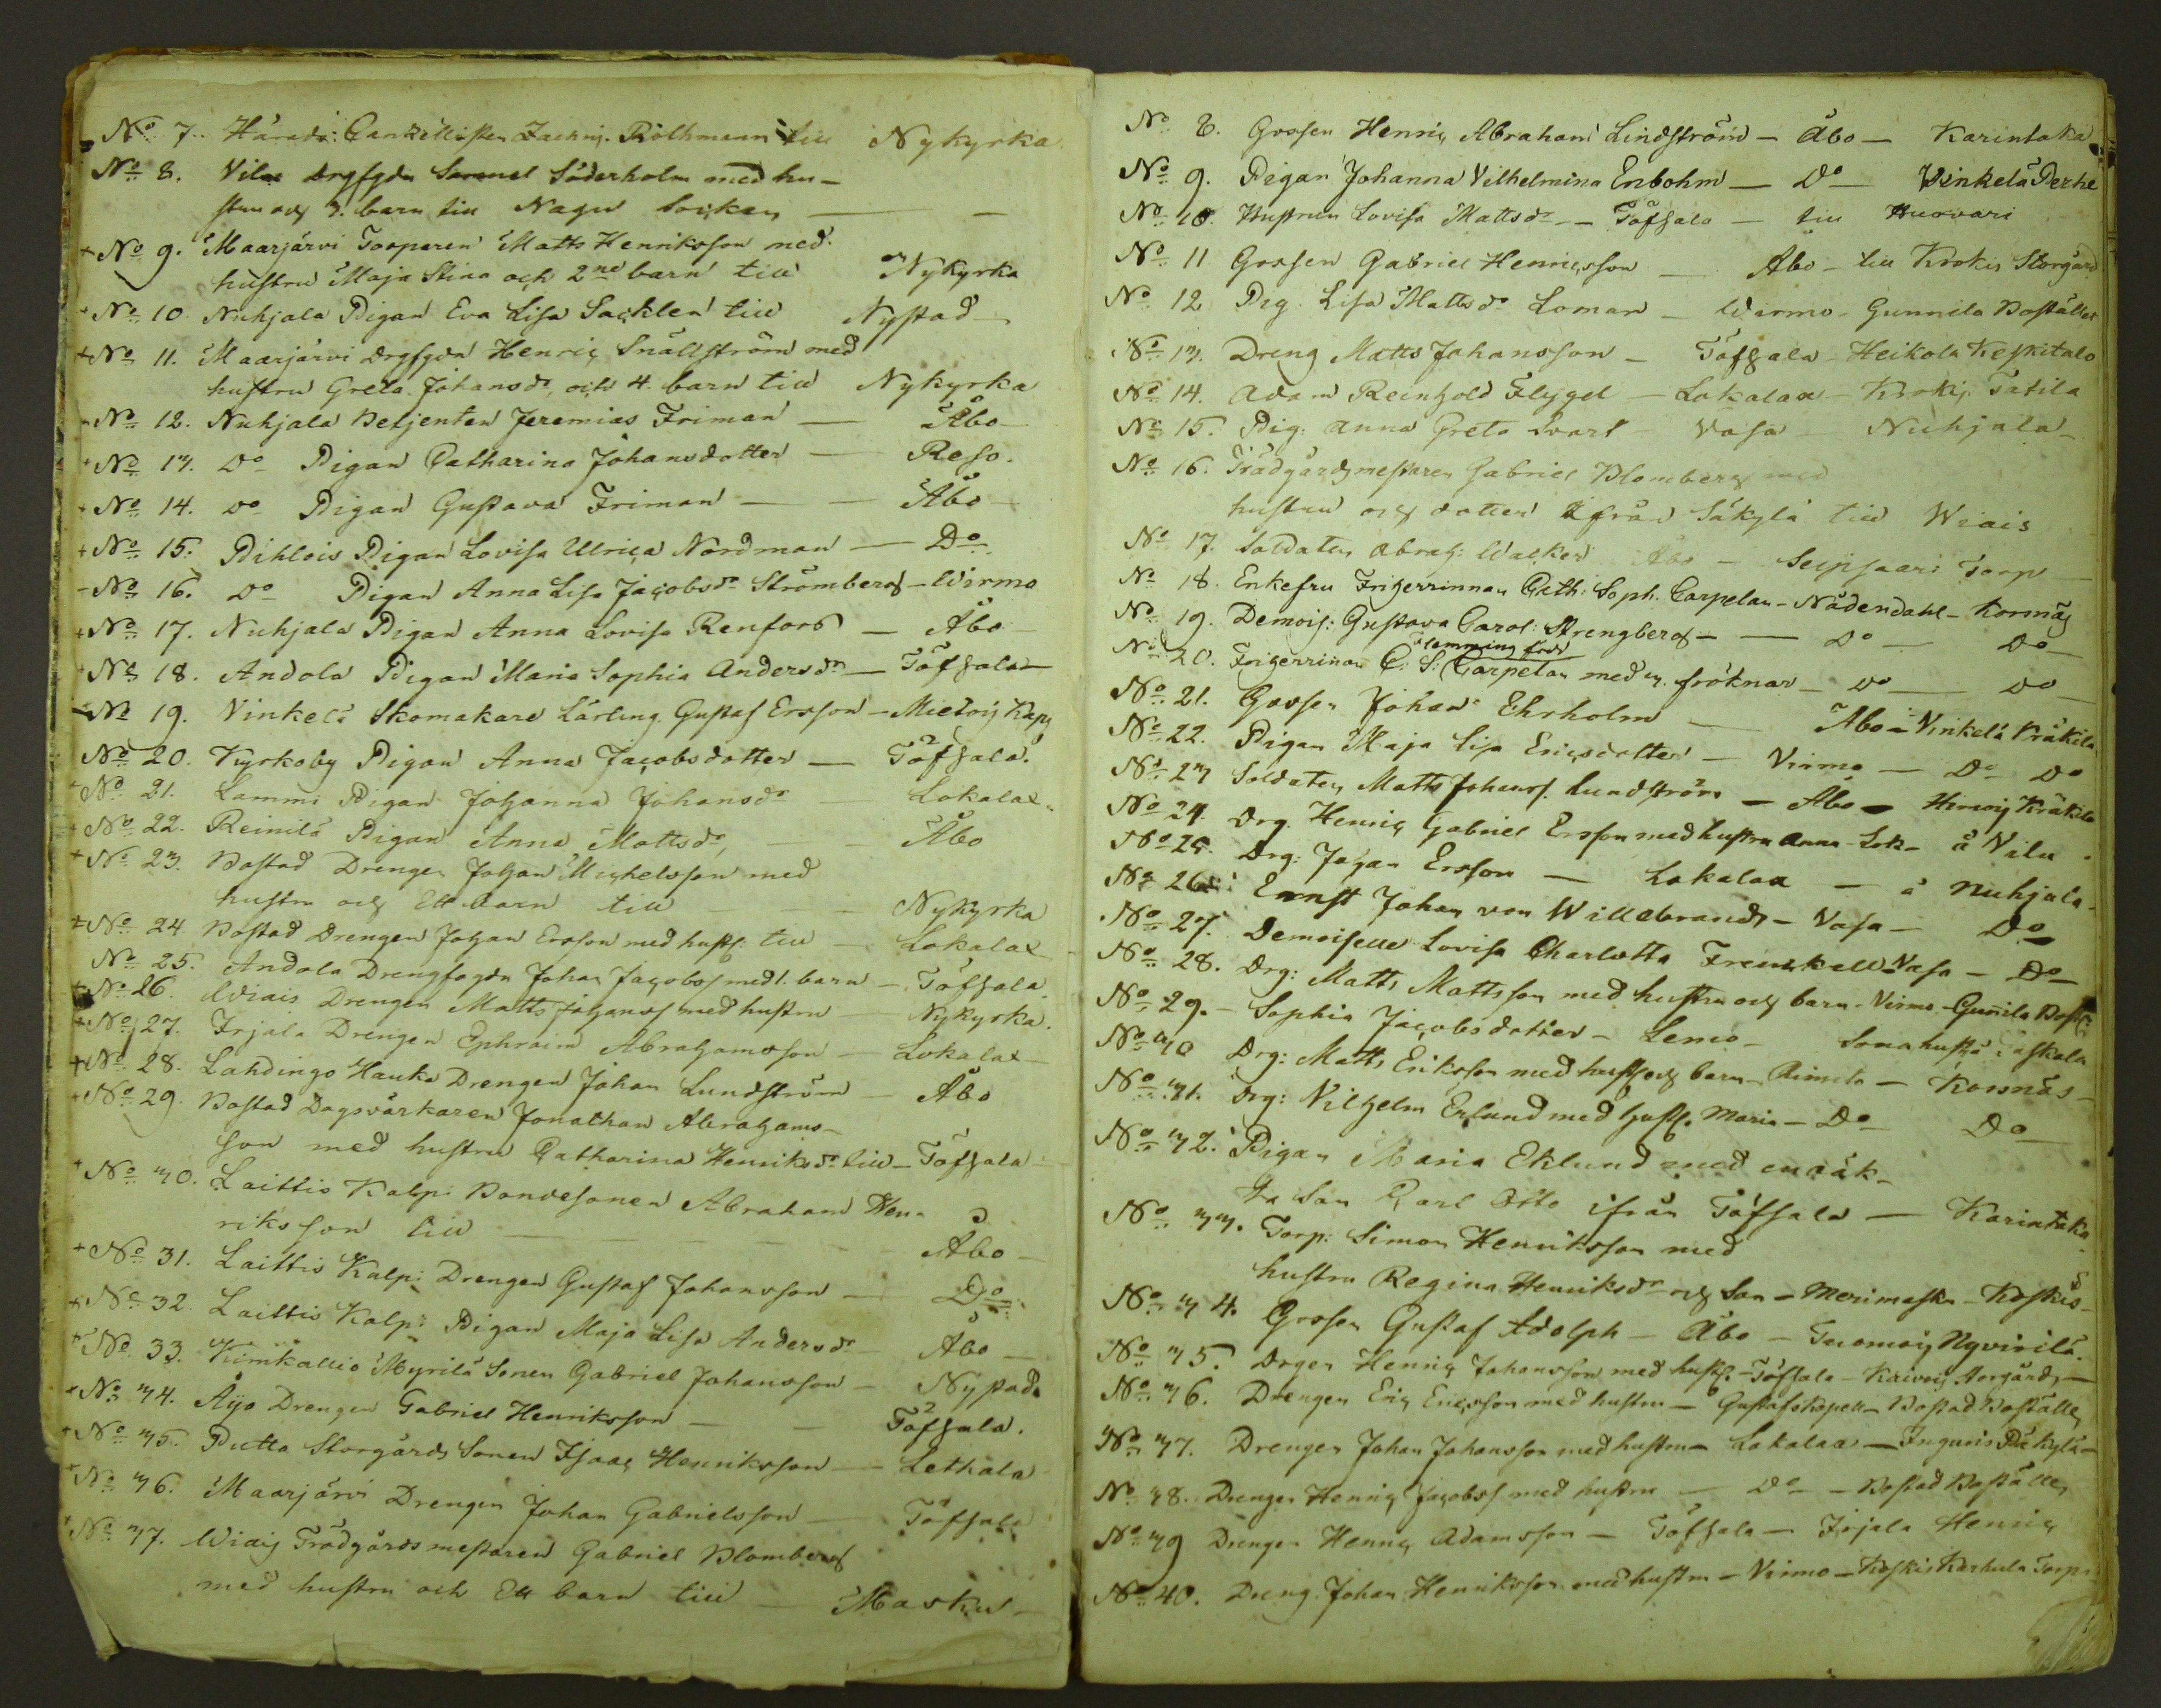 No 7. Härads: Cancellisten Zachris Röthmann till Nykyrka
No 8. Vilu drgfgdn Samuel Söderholm med hu-
stru och 3. barn till Nagu Socken
No 9. Maarjärvi Torparen Matts Henriksson med
hustru Maja Stina och 2ne barn till Nykyrka
No 10 Nuhjala Pigan Eva Lisa Sacklen till Nystad
No 11. Maarjärvi drgfgdn Henric Snällström med
hustru Greta Johansdr, och 4. barn till Nykyrka
No 12. Nuhjala Betjenten Jeremias Friman — Åbo
No 13. Do Pigan Catharina Johansdotter — Reso.
No 14. Do Pigan Gustava Friman — Åbo
No 15. Pihlois Pigan Lovisa Ulrica Nordman — Do
No 16. Do Pigan Anna Lisa Jacobsdr Strömberg — Wirmo
No 17. Nuhjala Pigan Anna Lovisa Renfors — Åbo
No 18. Andola Pigan Maria Sophia Andersdr — Töfsala
No 19. Vinkelä Skomakare Lärling Gustaf Ersson — Mietois Kap
No 20. Kyrkoby Pigan Anna Jacobsdotter — Töfsala.
No 21. Lammi Pigan Johanna Johansdr — Lokalax
No 22. Reinilä Pigan Anna Mattsdr, — Åbo
No 23. Bostad Drengen Johan Michelsson med
hustru och Ett barn till — Nykyrka
No 24 Bostad Drengen Johan Ersson med hust: till — Lokalax
No 25. Andola Drengfogdn Johan Jacobss med 1. barn — Töfsala
No 26. Wiais Drengen Matts Johanss med hustru — Nykyrka.
No 27. Irjala Drengen Ephraim Abrahamsson — Lokalax
No 28. Lahdingo Hauka Drengen Johan Lundström — Åbo
No 29. Bostad Dagsvärkaren Jonathan Abrahams-
son med hustru Catharina Henriksdr till — Töfsala
No 30. Laittis Kalp: Bondesonen Abraham Hen-
riksson till — Åbo
No 31. Laittis Kalp: Drengen Gustaf Johansson — Do
No 32. Laittis Kalp: Pigan Maja Lisa Andersdr — Åbo
No 33. Kimkallio Myrilä Sonen Gabriel Johansson — Nystad
No 34. Äyö Drengen Gabriel Henriksson — Töfsala.
No 35. Putta Storgårds Sonen Isaac Henriksson — Letkala
No 36. Maarjärvi Drengen Johan Gabrielsson — Töfsala
No 37. Wiais Trädgårdsmestaren Gabriel Blomberg
med hustru och Ett barn till — Masku
No 8. Gossen Henric Abraham Lindström — Åbo — Karintaka
No 9. Pigan Johanna Vilhelmina Enbohm — Do — Vinkelä Perhe
No 10. Hustrun Lovisa Mattsdr — Töfsala — till Huovari
No 11 Gossen Gabriel Henricsson — Åbo — till Koskis Storgård
No 12 Pig. Lisa Mattsdr Loman — Wirmo — Gunnila Bostället
No 13. Dreng Matts Johansson — Töfsala — Heikola Keskitalo
No 14. Adam Reinhold Flygel — Lokalax — Koskis Tatila
No 15. Pig: Anna Greta Svart — Vasa — Nuhjala
No 16. Trädgårdsmestaren Gabriel Blomberg med
hustru och dotter ifrån Säkylä till Wiais
No 17. Soldaten Abrah: Walker Åbo — Seipsaari Torp
No 18. Enkefru Friherrinnan Cath: Soph. Carpelan — Nådendahl — Korsnäs
No 19. Demois: Gustava Carol: Strengberg — Do — Do
Flemming född
No 20. Friherrinan C: S: Carpelan med 3. fröknar — Do — Do
No 21. Gossen Johan Ehrholm — Åbo — Vinkelä Kräkila
No 22. Pigan Maja Lisa Ericsdotter — Virmo — Do Do
No 23 Soldaten Matts Johanss. Lundström — Åbo — Hirvois Kräkila
No 24. Drg. Henric Gabriel Ersson med hustru Anna — Lok — å Vilu
No 25. Drg: Johan Ersson — Lokalax — å Nuhjala
No 26. Ernst Johan von Willebrand — Vasa — Do
No 27. Demoiselle Lovisa Charlotta Frenckell — Vasa — Do
No 28. Drg: Matts Mattsson med hustru och barn — Virmo — Gunila Bost:
No 29. Sophia Jacobsdotter — Lemo —
No 30 Drg: Matts Eriksson med hust och barn — Rimito — Korsnäs
No 31. Drg: Vilhelm Enlund med hust. Maria — Do Do
No 32. Pigan Maria Eklund med en oäk-
ta Son Carl Otto ifrån Töfsala — Karintaka
No 33. Torp: Simon Henriksson med
hustru Regina Henriksdr och Son — Merimasku — Koskis
No 34. Gossen Gustaf Adolph — Åbo — Tuomois Nyvirilä.
No 35. Drgen Henric Johansson med hust. — Töfsala — Kaivois Norgård
No 36. Drengen Eric Ericsson med hustru — Gustafs Kapell — Bostad Boställe
No 37. Drengen Johan Johansson med hustru — Lokalax — Inguris Päkylä
No 38. Drengen Henric Jacobss med hustru — Do — Bostad Boställe
No 39 Drengen Henric Adamsson — Töfsala — Irjala Henric
No 40. Dreng. Johan Henriksson med hustru — Virmo — Koskis Karhula Torp: